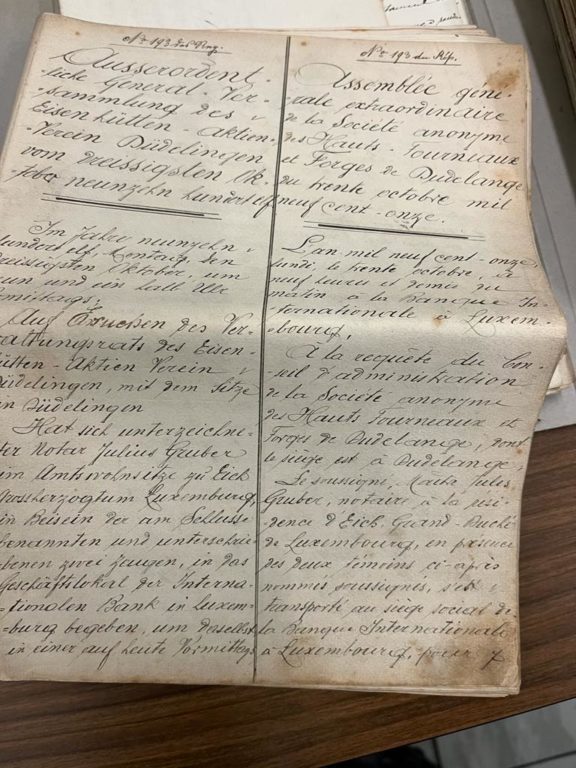 No 193 des Reg.
Ausserordent-
liche General-Ver-
sammlung des
Eisenhütten-Aktien-
Verein Düdelingen
vom dreissigsten Ok-
tober neunzehn hundert elf
Im Jahre neunzehn
hundert elf, Montag, den
dreissigsten Oktober, um
neun und ein halb Uhr
Vormittags,
Auf Ersuchen des Ver-
waltungsrats des Eisen-
hütten-Aktien Verein
Düdelingen, mit dem Sitze
in Düdelingen
Hat sich unterzeichne-
ter Notar Julius Gruber
im Amtswohnsitze zu Eich
Grossherzogtum Luxemburg,
in Beisein der am Schlusse
benannten und unterschrie-
benen zwei Zeugen, in das
Geschäftslokal der Interna-
tionalen Bank in Luxem-
burg begeben, um daselbst
in einer auf heute Vormittags
No 193 du Rép.
Assemblée géné-
rale extraordinaire
de la Société anonyme
des Hauts Fourneaux
et Forges de Dudelange
du trente octobre mil
neuf cent-onze.
L'an mil neuf cent-onze,
lundi, le trente octobre, à
neuf heures et demie du
matin à la Banque In-
ternationale à Luxem-
bourg,
À la requête du Con-
seil d'administration
de la Société anonyme
des Hauts Fourneaux et
Forges de Dudelange, dont
le siège est à Dudelange
Le soussigné, Maître Jules
Gruber, notaire à la rési-
dence d'Eich, Grand-Duché
de Luxembourg, en présence
des deux témoins ci-après
nommés soussignés, s'est
transporté au siège social de
la Banque Internationale
à Luxembourg, pour y